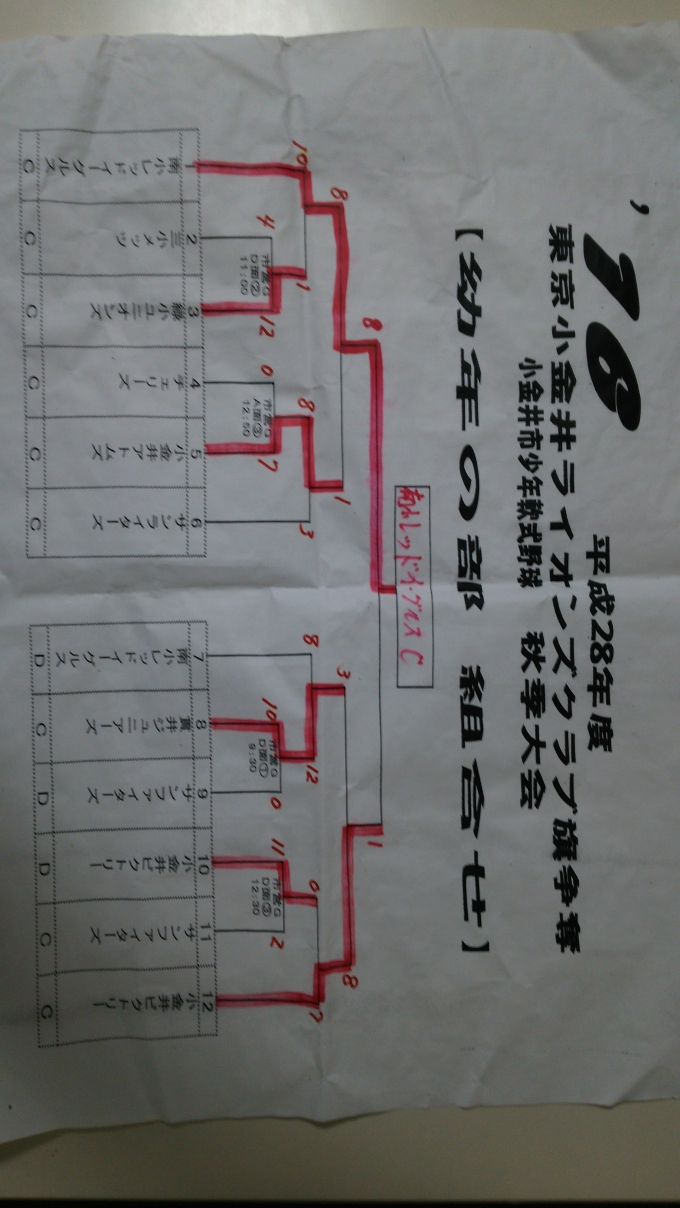 '16
平成28年度
東京小金井ライオンズクラブ旗争奪
小金井市少年軟式野球 秋季大会
【幼年の部 組合せ】
南小レッドイーグルス C
8
1
8
1
3
8
10
1
8
3
8
12
0
7
4
12
0
7
10
0
11
2
市営G
D面②
11:00
市営G
A面③
12:50
市営G
D面①
9:30
市営G
D面③
12:30
1
2
3
4
5
6
7
8
9
10
11
12
南小レッドイーグルス
三小メッツ
緑小ユニオンズ
チェリーズ
小金井アトムズ
サンライターズ
南小レッドイーグルス
貫井ジュニアーズ
サンファイターズ
小金井ビクトリー
サンファイターズ
小金井ビクトリー
C
C
C
C
C
C
D
C
D
D
C
C